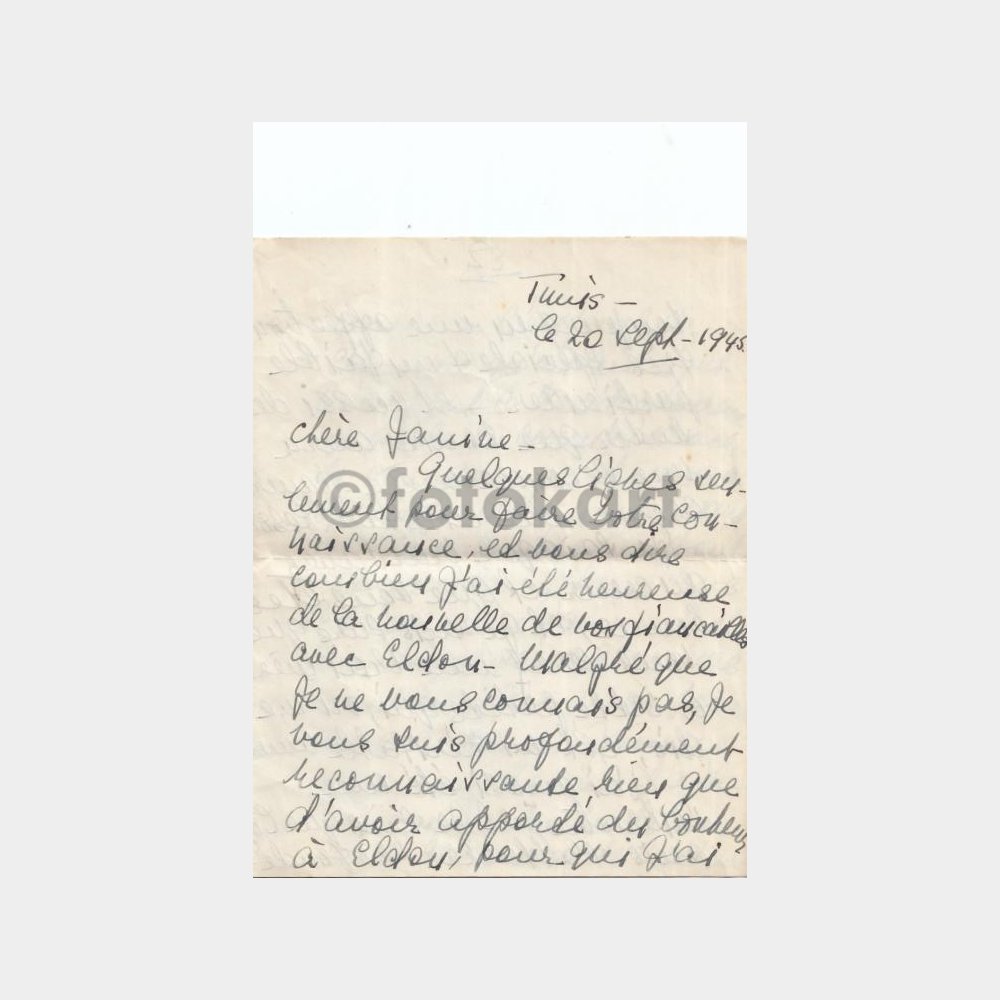 Tunis -
le 20 Sept - 1945
chère Janine -
Quelques lignes seu-
lement pour faire votre con-
naissance, et vous dire
combien j'ai été heureuse
de la nouvelle de vos fiançailles
avec Eldon - Malgré que
je ne vous connais pas, je
vous suis profondément
reconnaissante rien que
d'avoir apporté du bonheur
à Eldon, pour qui j'ai
©fotokart